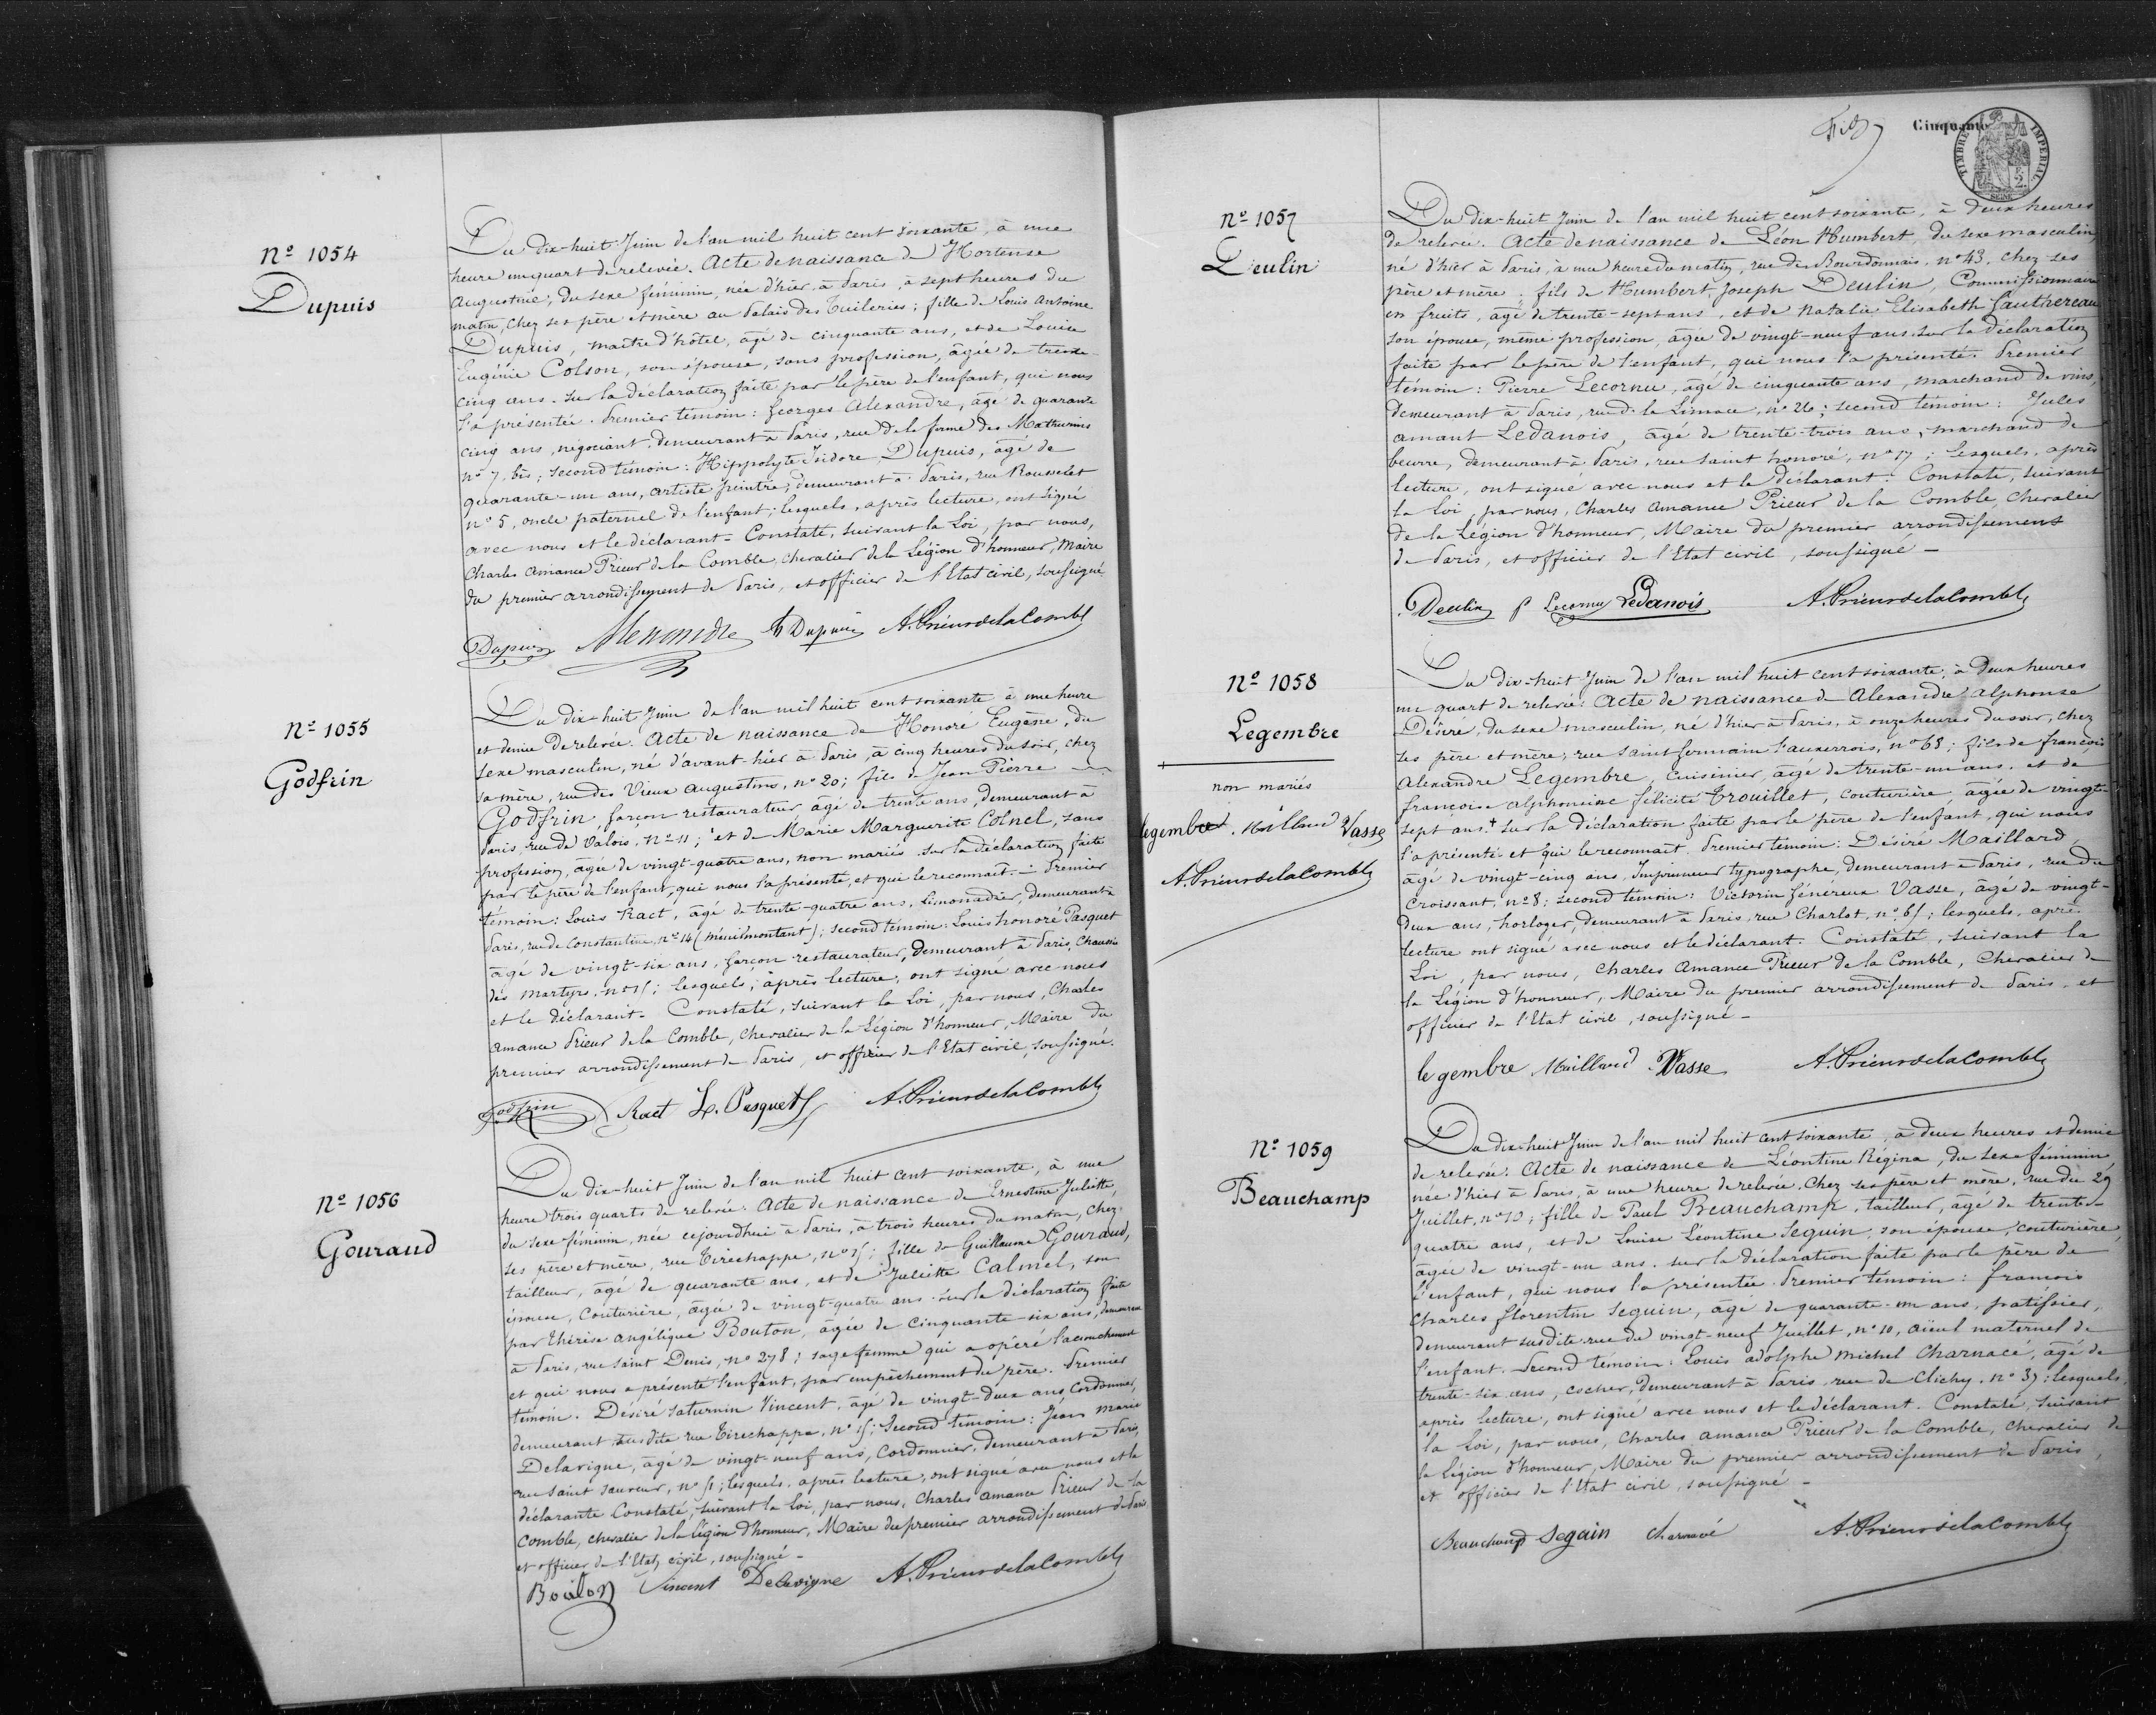 Nº 1054
Dupuis
Du dix-huit Juin de l'an mil huit cent soixante, à une
heure un quart de relevée. Acte de naissance de Hortense
Augustine, du sexe féminin, née d'hier à Paris, à sept heures du
matin, chez ses père et mère au Palais des Tuileries; fille de Louis Antoine
Dupuis, maître d'hôtel, âgé de cinquante ans, et de Louise
Eugénie Colson, son épouse, sans profession, âgée de trente-
cinq ans. Sur la déclaration faite par le père de l'enfant, qui nous
l'a présentée. Premier témoin: Georges Alexandre, âgé de quarante
cinq ans, négociant, demeurant à Paris, rue de la ferme des Mathurins
nº 7 bis; second témoin: Hippolyte Isidore Dupuis, âgé de
quarante-un ans, artiste peintre, demeurant à Paris, rue Rousselet
nº 5, oncle paternel de l'enfant; lesquels, après lecture, ont signé
avec nous et le déclarant. Constaté, suivant la Loi, par nous,
Charles Amance Prieur de la Comble, chevalier de la Légion d'honneur, Maire
du premier arrondissement de Paris, et officier de l'Etat civil, soussigné.
Dupuis Alexandre H Dupuis A. Prieur de la Comble
Nº 1055
Godfrin
Du dix-huit Juin de l'an mil huit cent soixante à une heure
et demie de relevée. Acte de naissance de Honoré Eugène, du
sexe masculin, né d'avant-hier à Paris, à cinq heures du soir, chez
sa mère, rue des Vieux Augustins, nº 20; fils de Jean Pierre
Godfrin, garçon restaurateur âgé de trente ans, demeurant à
Paris, rue de Valois, nº 11; et de Marie Marguerite Colnel, sans
profession, âgée de vingt-quatre ans, non mariés. Sur la déclaration faite
par le père de l'enfant, qui nous l'a présenté, et qui le reconnait. - Premier
témoin: Louis Ract, âgé de trente-quatre ans, Limonadier, demeurant à
Paris, rue de Constantine, nº 14 (Ménilmontant); second témoin: Louis honoré Pasquet
âgé de vingt-six ans, garçon restaurateur, demeurant à Paris, Chaussée
des Martyrs, nº 15; lesquels, après lecture, ont signé avec nous
et le déclarant. Constaté, suivant la Loi, par nous, Charles
Amance Prieur de la Comble, chevalier de la Légion d'honneur, Maire du
premier arrondissement de Paris, et officier de l'Etat civil, soussigné.
Godfrin Ract L. Pasquet A. Prieur de la Comble
Nº 1056
Gouraud
Du dix-huit Juin de l'an mil huit cent soixante, à une
heure trois quarts de relevée. Acte de naissance de Ernestine Juliette,
du sexe féminin, née cejourd'hui à Paris, à trois heures du matin, chez
ses père et mère, rue Tirechappe, nº 15; fille de Guillaume Gouraud,
tailleur, âgé de quarante ans, et de Juliette Calmel, son
épouse, couturière, âgée de vingt-quatre ans. Sur la déclaration faite
par Thérèse Angélique Bouton, âgée de cinquante-six ans, demeurant
à Paris, rue Saint Denis, nº 278; sage femme qui a opéré l'accouchement
et qui nous a présenté l'enfant, par empêchement du père. Premier
témoin. Désiré Saturnin Vincent, âgé de vingt-deux ans, Cordonnier,
demeurant susdite rue Tirechappe, nº 15; Second témoin: Jean Marie
Delavigne, âgé de vingt-neuf ans, Cordonnier, demeurant à Paris,
rue Saint Sauveur, nº 51; lesquels, après lecture, ont signé avec nous et la
déclarante Constaté, suivant la Loi, par nous, Charles Amance Prieur de la
Comble, chevalier de la Légion d'honneur, Maire du premier arrondissement de Paris
et officier de l'Etat civil, soussigné.
Bouton Vincent Delavigne A. Prieur de la Comble
Cinquante
TIMBRE IMPERIAL
2.
SEINE
Nº 1057
Deulin
Du dix-huit Juin de l'an mil huit cent soixante, à deux heures
de relevée. Acte de naissance de Léon Humbert, du sexe masculin,
né d'hier à Paris, à une heure du matin, rue des Bourdonnais, nº 43, chez ses
père et mère; fils de Humbert Joseph Deulin, Commissionnaire
en fruits, âgé de trente-sept ans, et de Natalie Elisabeth Gauthereau
son épouse, même profession, âgée de vingt-neuf ans. Sur la déclaration
faite par le père de l'enfant, qui nous l'a présenté. Premier
témoin: Pierre Lecornu, âgé de cinquante ans, marchand de vins,
demeurant à Paris, rue de la Limace, nº 26; second témoin: Jules
Amant Ledanois, âgé de trente-trois ans, marchand de
beurre, demeurant à Paris, rue Saint honoré, nº 17; lesquels, après
lecture, ont signé avec nous et le déclarant. Constaté, suivant
la Loi, par nous, Charles Amance Prieur de la Comble, chevalier
de la Légion d'honneur, Maire du premier arrondissement
de Paris, et officier de l'Etat civil, soussigné -
Deulin P Lecornu Ledanois A. Prieur de la Comble
Nº 1058
Legembre
non mariés
legembre Maillard Vasse
A. Prieur de la Comble
Du dix-huit Juin de l'an mil huit cent soixante, à deux heures
un quart de relevée. Acte de naissance de Alexandre Alphonse
Désiré, du sexe masculin, né d'hier à Paris, à onze heures du soir, chez
ses père et mère, rue Saint Germain l'auxerrois, nº 68; fils de françois
Alexandre Legembre, cuisinier, âgé de trente-un ans, et de
françoise Alphonsine félicité Trouillet, couturière, âgée de vingt-
sept ans.+ Sur la déclaration faite par le père de l'enfant, qui nous
l'a présenté et qui le reconnait. Premier témoin: Désiré Maillard,
âgé de vingt-cinq ans, Imprimeur typographe, demeurant à Paris, rue du
Croissant, nº 8; second témoin: Victorin Généreux Vasse, âgé de vingt-
deux ans, horloger, demeurant à Paris, rue Charlot, nº 65; lesquels, après
lecture ont signé avec nous et le déclarant. Constaté, suivant la
Loi, par nous, Charles Amance Prieur de la Comble, Chevalier de
la Légion d'honneur, Maire du premier arrondissement de Paris, et
officier de l'Etat civil, soussigné -
legembre Maillard Vasse A. Prieur de la Comble
Nº 1059
Beauchamp
Du dix-huit Juin de l'an mil huit cent soixante, à deux heures et demie
de relevée. Acte de naissance de Léontine Régina, du sexe féminin
née d'hier à Paris, à une heure de relevée, chez ses père et mère, rue du 29
Juillet, nº 10; fille de Paul Beauchamp, tailleur, âgé de trente-
quatre ans, et de Louise Léontine Seguin, son épouse, couturière,
âgée de vingt-un ans. Sur la déclaration faite par le père de
l'enfant, qui nous l'a présentée. Premier témoin: françois
Charles Florentin Seguin, âgé de quarante-un ans, patissier,
demeurant susdite rue du vingt-neuf Juillet, nº 10, aïeul maternel de
l'enfant. Second témoin: Louis Adolphe Michel Charnacé, âgé de
trente-six ans, cocher, demeurant à Paris, rue de Clichy, nº 37; lesquels,
après lecture, ont signé avec nous et le déclarant. Constaté, suivant
la Loi, par nous, Charles Amance Prieur de la Comble, chevalier de
la Légion d'honneur, Maire du premier arrondissement de Paris,
et officier de l'Etat civil, soussigné -
Beauchamp Seguin Charnacé A. Prieur de la Comble